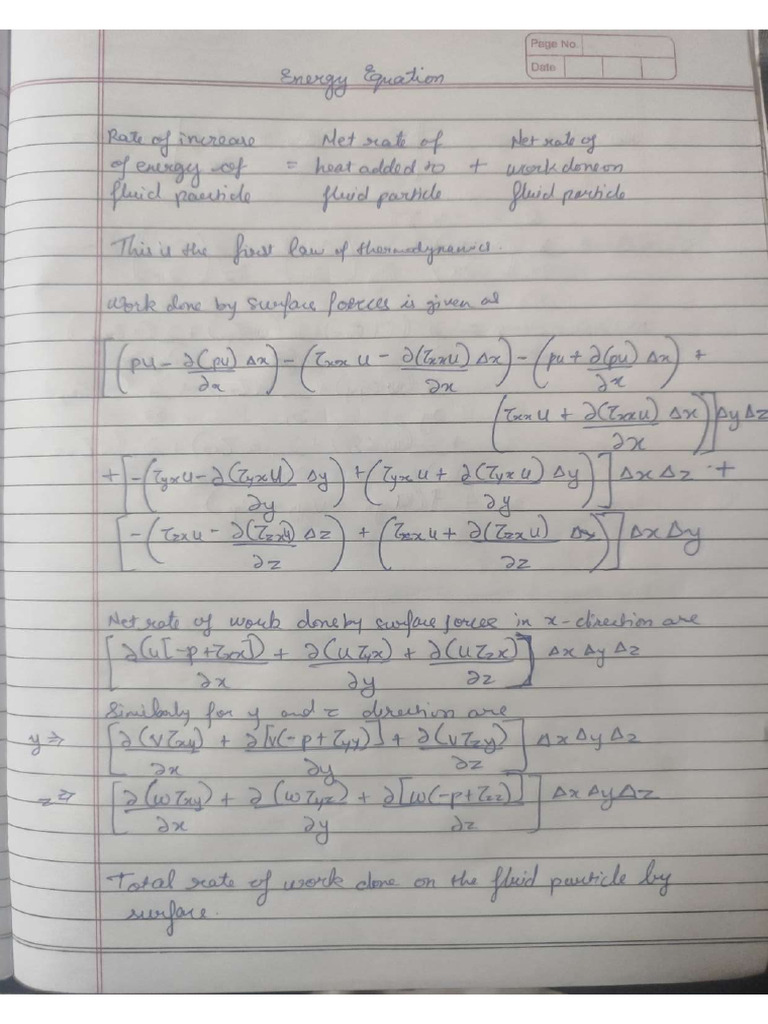 Page No.
Date
Energy Equation
Rate of increase Net rate of Net rate of
of energy of = heat added to + work done on
fluid particle fluid particle fluid particle
This is the first law of thermodynamics.
Work done by surface forces is given as
[(pu - ∂(pu)/∂x Δx) - (τxx u - ∂(τxxu)/∂x Δx) - (pu + ∂(pu)/∂x Δx) +
(τxx u + ∂(τxxu)/∂x Δx)] Δy Δz
+ [-(τyxu - ∂(τyxu)/∂y Δy) + (τyxu + ∂(τyxu)/∂y Δy)] Δx Δz +
[-(τzxu - ∂(τzxu)/∂z Δz) + (τzxu + ∂(τzxu)/∂z Δy)] Δx Δy
Net rate of work done by surface forces in x-direction are
[∂(u[-p+τxx])/∂x + ∂(uτyx)/∂y + ∂(uτzx)/∂z] Δx Δy Δz
Similarly for y and z direction are
y⇒ [∂(vτxy)/∂x + ∂[v(-p+τyy)]/∂y + ∂(vτzy)/∂z] Δx Δy Δz
z⇒ [∂(wτxy)/∂x + ∂(wτyz)/∂y + ∂[w(-p+τzz)]/∂z] Δx Δy Δz
Total rate of work done on the fluid particle by
surface.